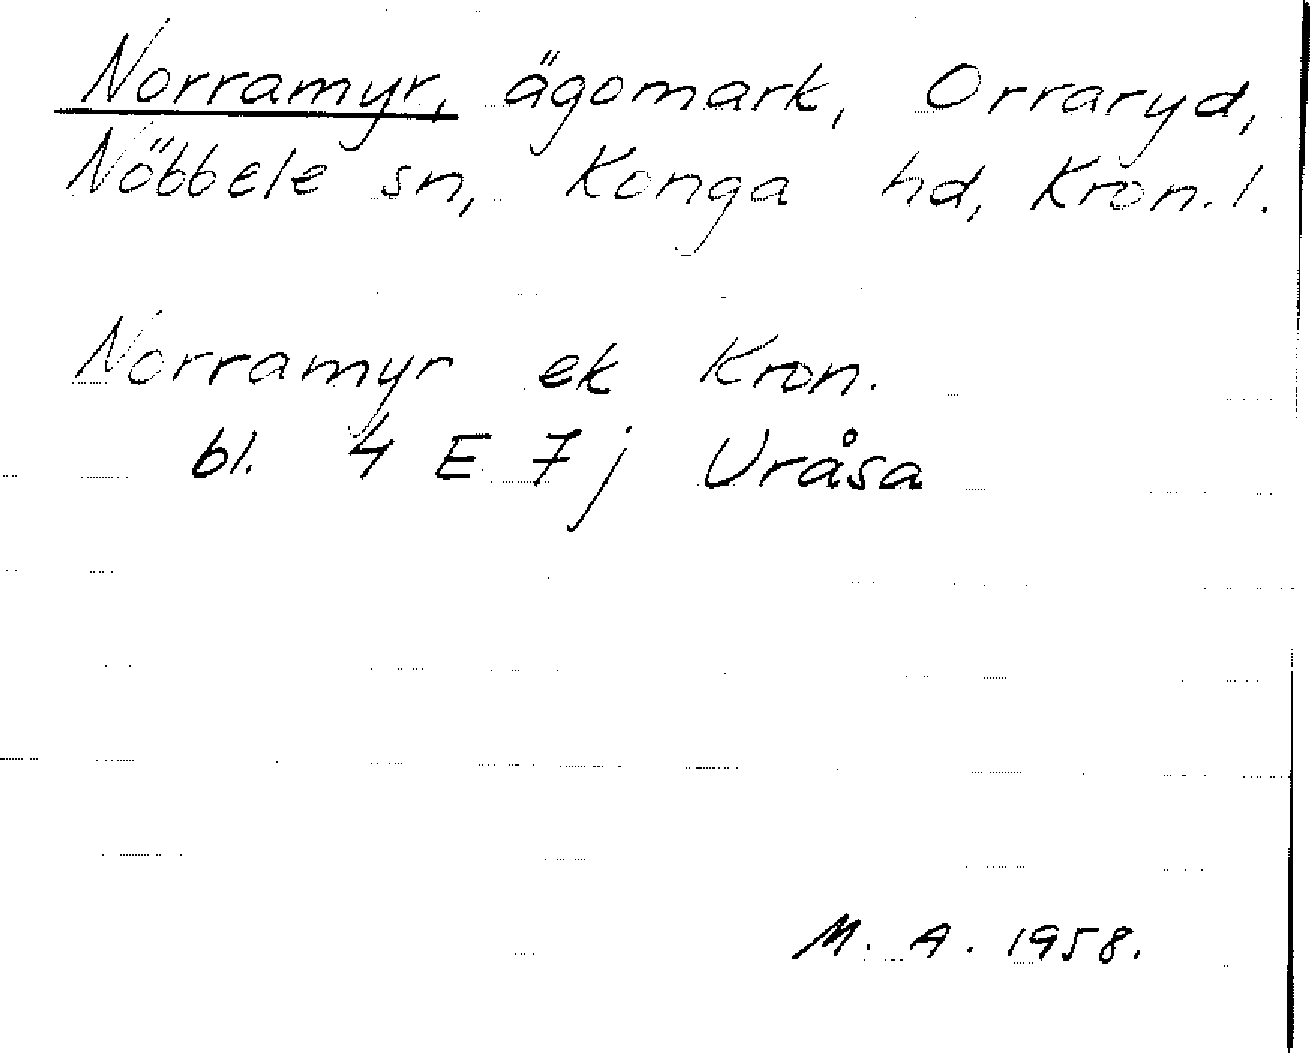 Norramyr, ägomark, Orraryd,
Nöbbele sn, Konga hd, Kron. l.
Norramyr ek Kron.
bl. 4 E 7 j Uråsa
M. A. 1958.